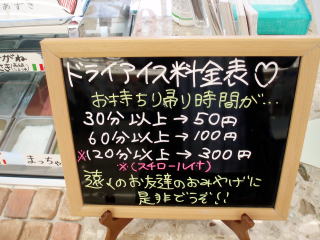 ドライアイス料金表♡
お持ち帰り時間が…
30分以上→50円
60分以上→100円
※120分以上→300円
※(スチロール付)
遠くのお友達のおみやげに
是非どうぞ!!
まっちゃ